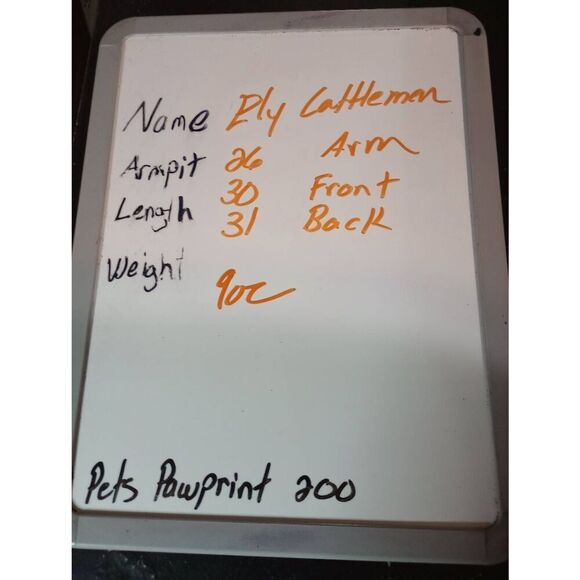 Name Ely Cattleman
Armpit 26 Arm
Length 30 Front
31 Back
Weight 9oz
Pets Pawprint 200